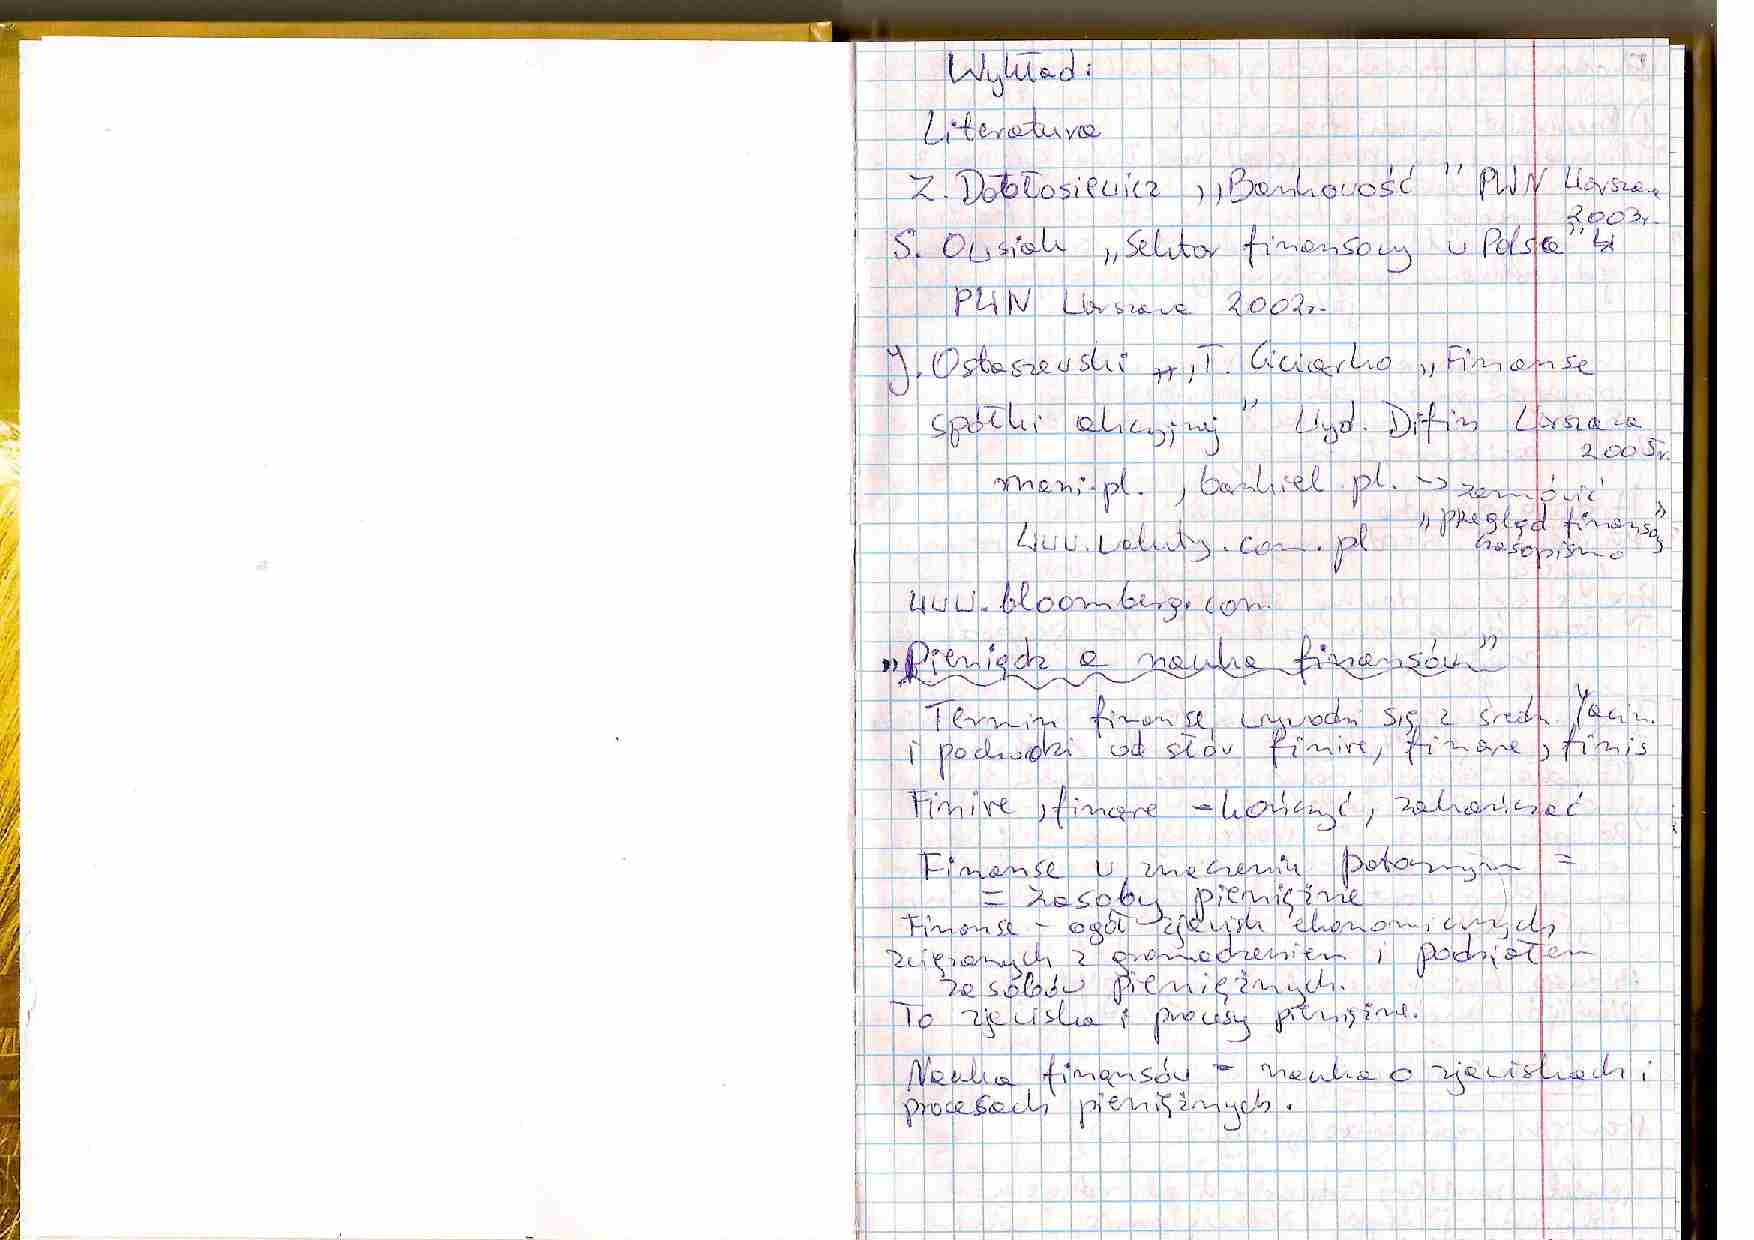 Wykład:
Literatura
Z. Dobosiewicz ,,Bankowość" PWN Warszawa
2003r.
S. Owsiak ,,Sektor finansowy w Polsce"
PWN Warszawa 2002r.
J. Ostaszewski , T. Cicirko ,,Finanse
spółki akcyjnej" Wyd. Difin Warszawa
2005r.
mani.pl. , bankiel.pl. -> zamówić
,,przegląd finansowy"
czasopismo
www.waluty.com.pl
www.bloomberg.com
,,Pieniądz a nauka finansów"
Termin finanse wywodzi się z średn. łacin.
i pochodzi od słów finire, finare, finis
Finire , finare - kończyć, zakańczać
Finanse w znaczeniu potocznym =
= zasoby pieniężne
Finanse - ogół zjawisk ekonomicznych
związanych z gromadzeniem i podziałem
zasobów pieniężnych.
To zjawiska i procesy pieniężne.
Nauka finansów - nauka o zjawiskach i
procesach pieniężnych.